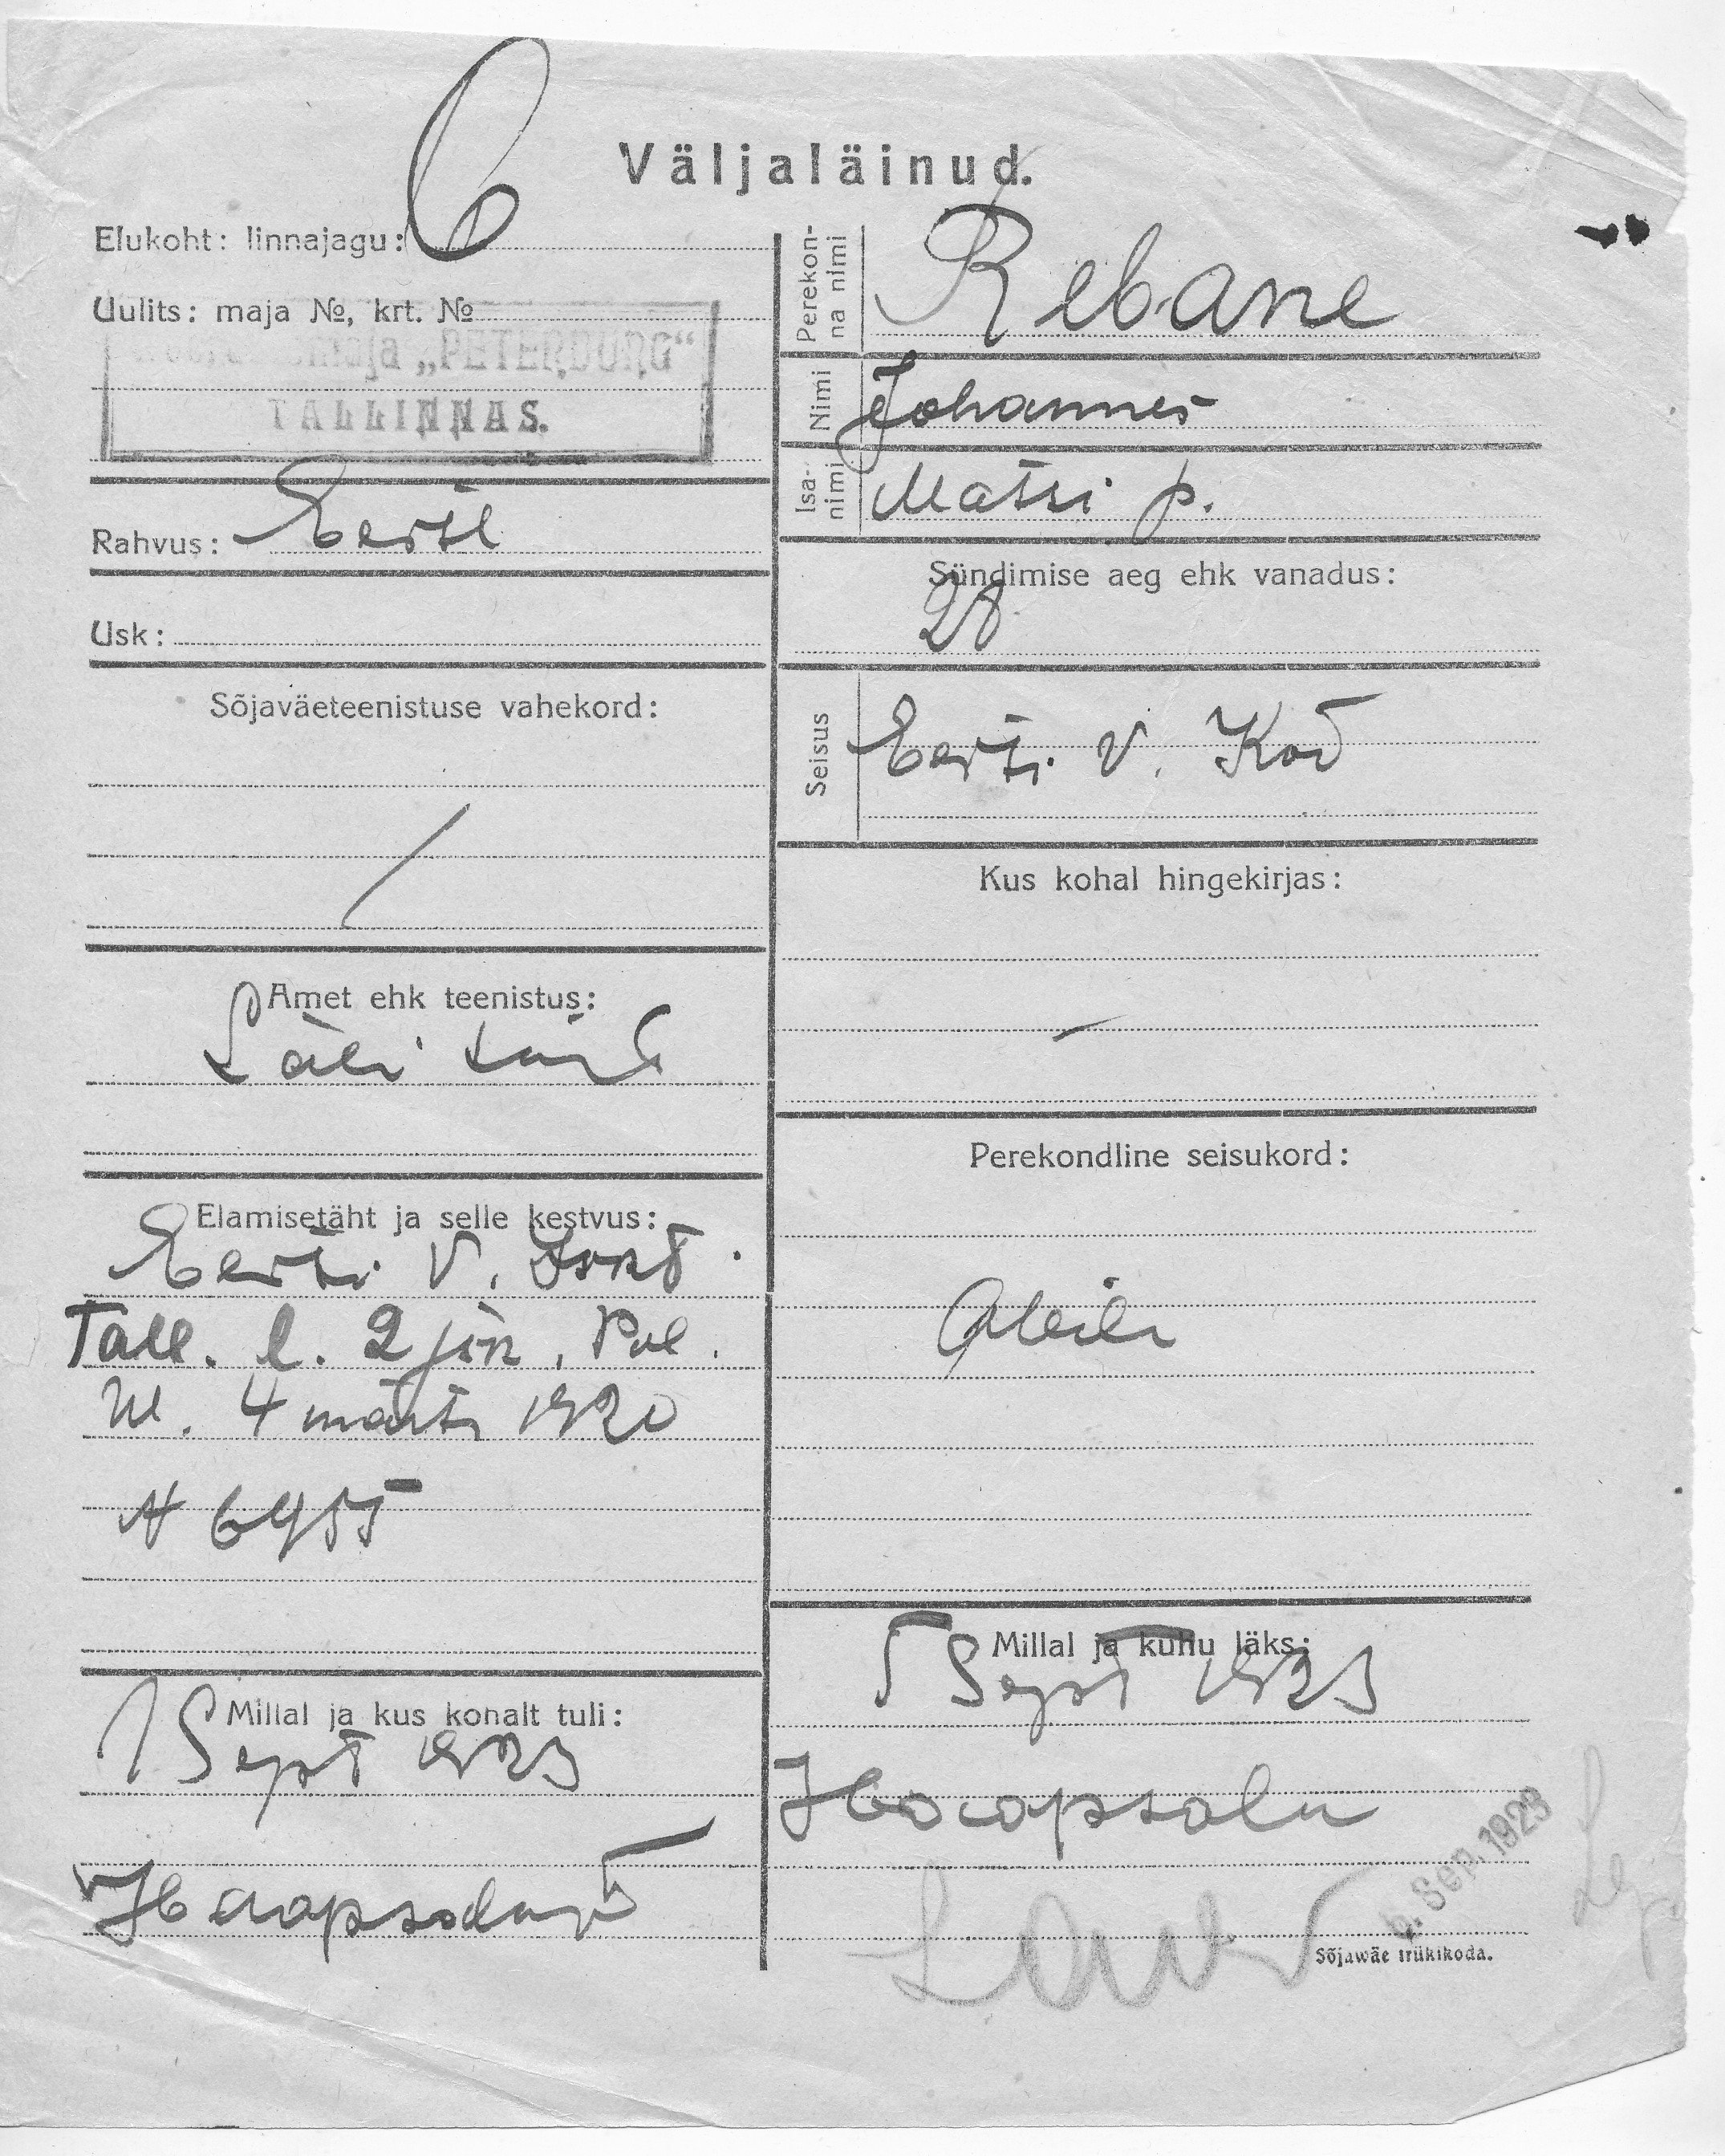 Väljaläinud.
Elukoht: linnajagu:
6
Uulits: maja №, krt. №
maja „PETERBURG“
TALLINNAS.
Rahvus: Eesti
Usk:
Sõjaväeteenistuse vahekord:
Amet ehk teenistus:
Elamisetäht ja selle kestvus:
Eesti V.
Tall. l. 2 jsk. Pol.
4 märts 1920
N 6955
Millal ja kus kohalt tuli:
1 Sept 1923
Haapsalust
Perekonna nimi
Rebane
Nimi
Johannes
Isanimi
Matsi p.
Sündimise aeg ehk vanadus:
28
Seisus
Eesti V. Kod
Kus kohal hingekirjas:
Perekondline seisukord:
Abielu
Millal ja kuhu läks:
5 Sept 1923
Haapsalu
6. Sep. 1923
Sõjawäe trükikoda.